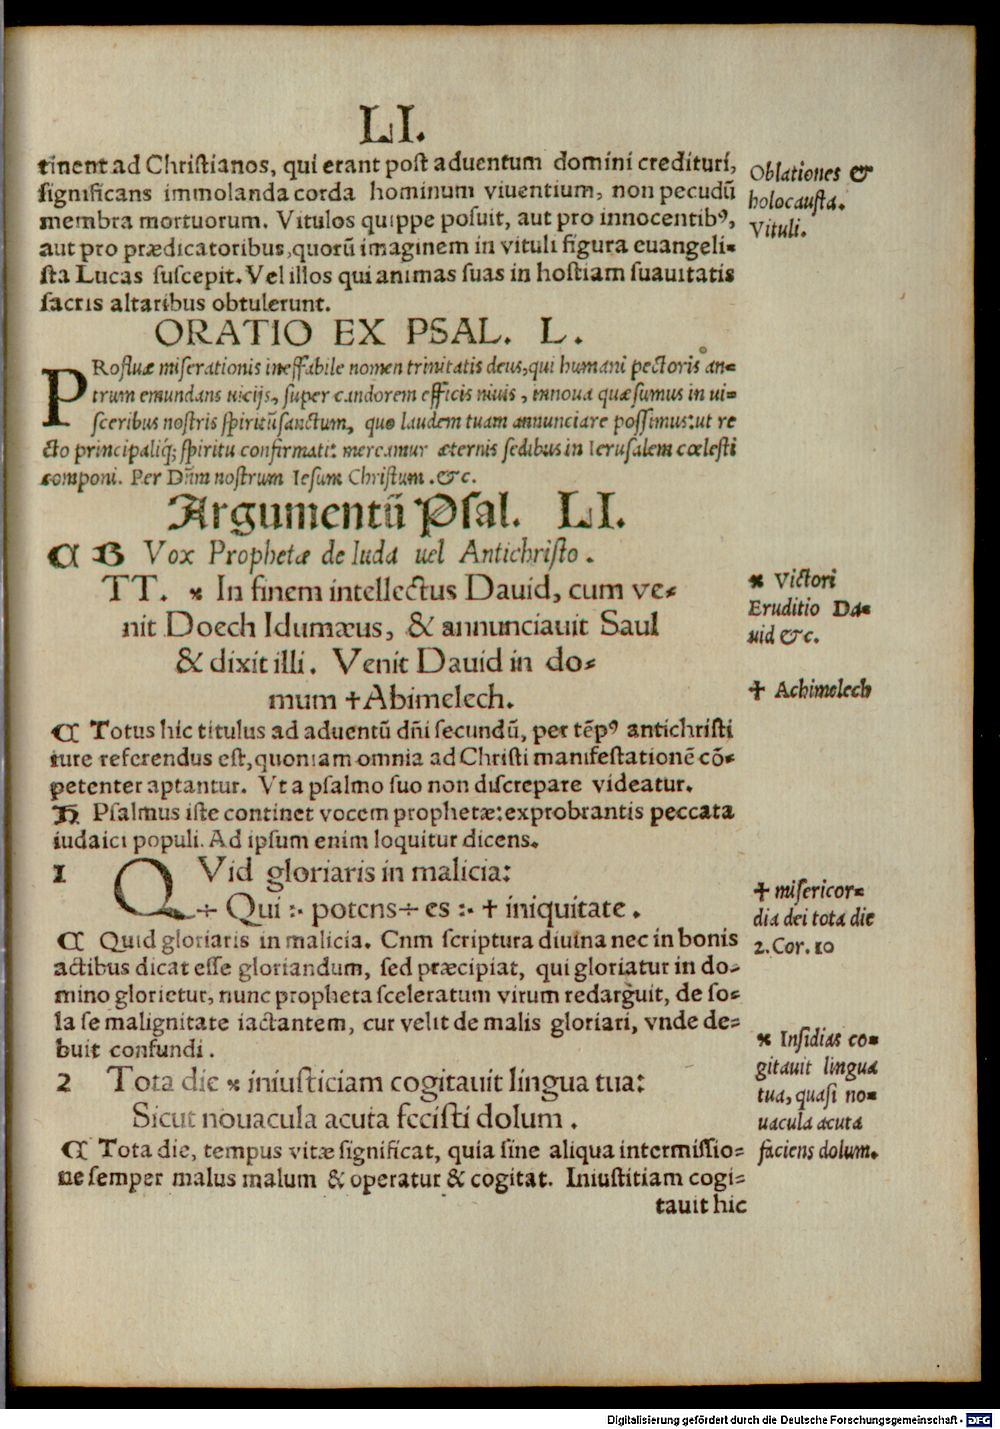 LI.
tinent ad Christianos, qui erant post aduentum domini credituri,
significans immolanda corda hominum viuentium, non pecudū
membra mortuorum. Vitulos quippe posuit, aut pro innocentibꝰ,
aut pro prædicatoribus, quorū imaginem in vituli figura euangeli-
sta Lucas suscepit. Vel illos qui animas suas in hostiam suauitatis
sacris altaribus obtulerunt.
Oblationes &
holocausta.
Vituli.
ORATIO EX PSAL. L.
PRo tuæ miserationis ineffabile nomen trinitatis deus, qui humani pectoris an-
trum emundans uicijs, super candorem efficis niuis, innoua quæsumus in ui-
sceribus nostris spiritū sanctum, quo laudem tuam annunciare possimus: ut re
cto principaliq; spiritu confirmati: mereamur æternis sedibus in Ierusalem cœlesti
componi. Per Dñm nostrum Iesum Christum. &c.
Argumentū Psal. LI.
₵ B Vox Prophetæ de Iuda uel Antichristo.
TT. * In finem intellectus Dauid, cum ve-
nit Doech Idumæus, & annunciauit Saul
& dixit illi. Venit Dauid in do-
mum †Abimelech.
* Victori
Eruditio Da-
uid &c.
† Achimelech
₵ Totus hic titulus ad aduentū dñi secundū, per tēpꝰ antichristi
iure referendus est, quoniam omnia ad Christi manifestationē cō-
petenter aptantur. Vt a psalmo suo non discrepare videatur.
H. Psalmus iste continet vocem prophetæ: exprobrantis peccata
iudaici populi. Ad ipsum enim loquitur dicens.
1 QVid gloriaris in malicia:
÷ Qui :· potens ÷ es :· † iniquitate.
† misericor-
dia dei tota die
2. Cor. 10
₵ Quid gloriaris in malicia. Cnm scriptura diuina nec in bonis
actibus dicat esse gloriandum, sed præcipiat, qui gloriatur in do-
mino glorietur, nunc propheta sceleratum virum redarguit, de so-
la se malignitate iactantem, cur velit de malis gloriari, vnde de-
buit confundi.
2 Tota die * iniusticiam cogitauit lingua tua:
Sicut nouacula acuta fecisti dolum.
* Insidias co-
gitauit lingua
tua, quasi no-
uacula acuta
faciens dolum.
₵ Tota die, tempus vitæ significat, quia sine aliqua intermissio-
ne semper malus malum & operatur & cogitat. Iniustitiam cogi-
tauit hic
Digitalisierung gefördert durch die Deutsche Forschungsgemeinschaft - DFG